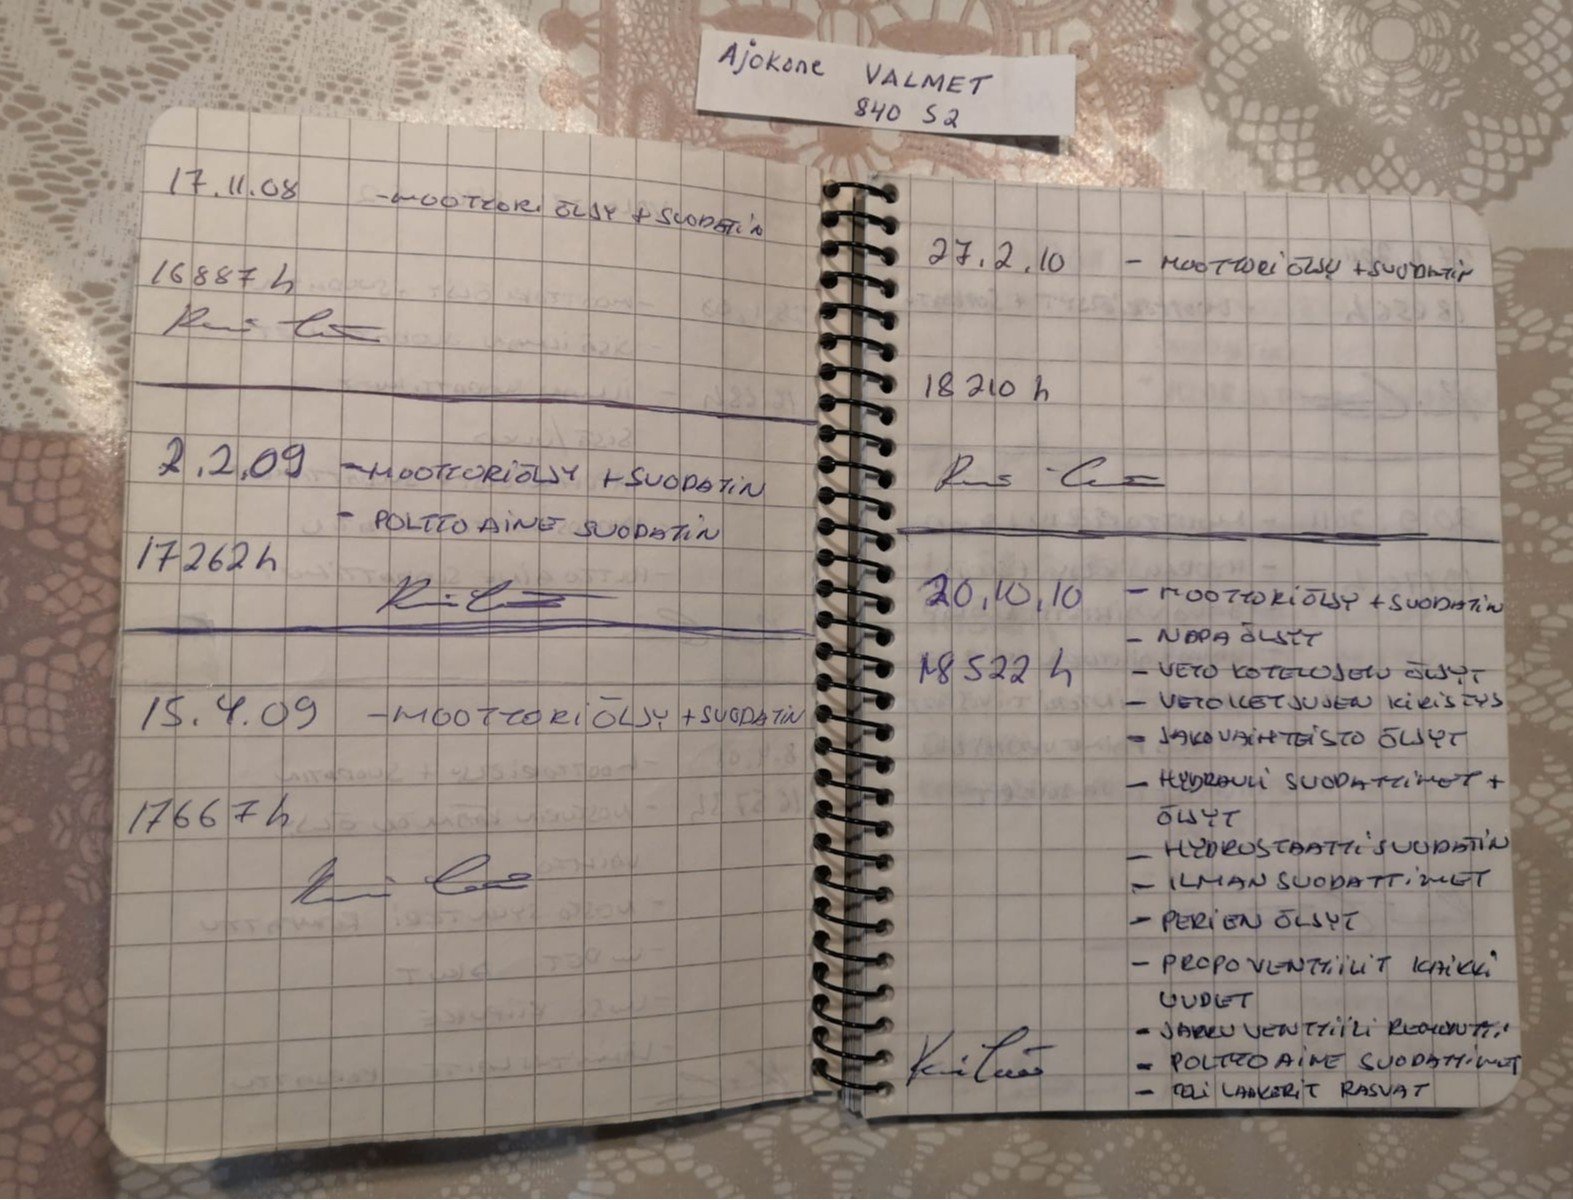 Ajokone VALMET
840 S2
17.11.08 - MOOTTORI ÖLJY + SUODATIN
16887 h
2.2.09 - MOOTTORIÖLJY + SUODATIN
- POLTTOAINE SUODATIN
17262h
15.4.09 - MOOTTORIÖLJY + SUODATIN
17667h
27.2.10 - MOOTTORIÖLJY + SUODATIN
18210 h
20.10.10 - MOOTTORIÖLJY + SUODATIN
- NAPA ÖLJYT
18522 h - VETO KOTELOJEN ÖLJYT
- VETOKETJUJEN KIRISTYS
- JAKOVAIHTEISTO ÖLJYT
- HYDRAULI SUODATTIMET +
ÖLJYT
- HYDROSTAATTISUODATIN
- ILMANSUODATTIMET
- PERIEN ÖLJYT
- PROPOVENTTIILIT KAIKKI
UUDET
- JARRUVENTTIILI REMONTTI
- POLTTOAINE SUODATTIMET
- TELI LAAKERIT RASVAT